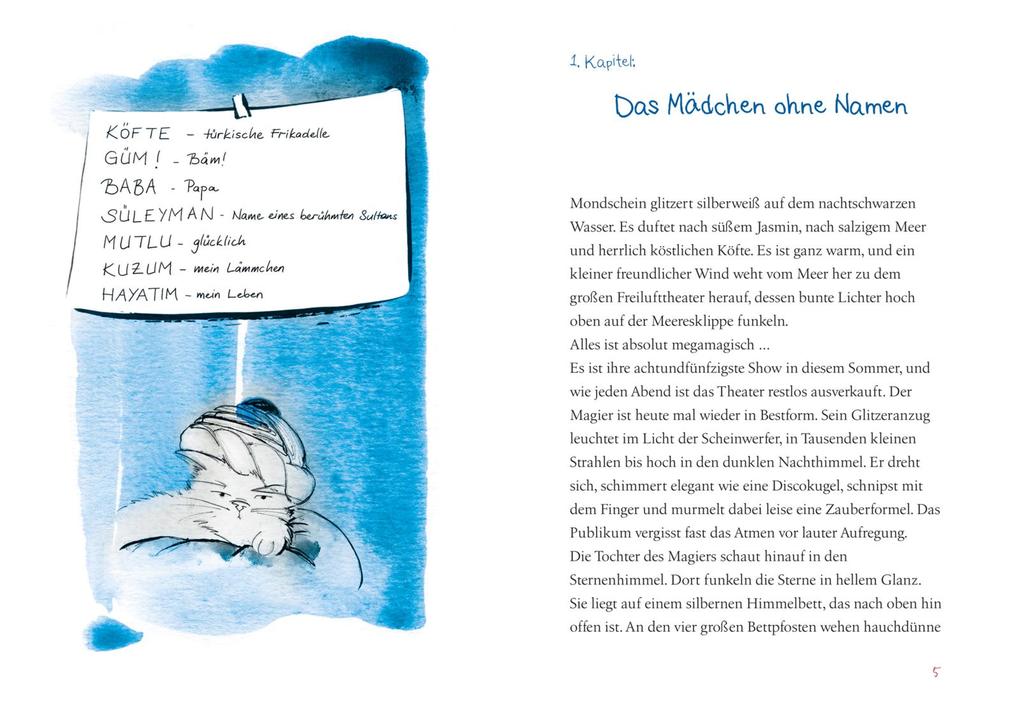 KÖFTE - türkische Frikadelle
GÜM! - Bäm!
BABA - Papa
SÜLEYMAN - Name eines berühmten Sultans
MUTLU - glücklich
KUZUM - mein Lämmchen
HAYATIM - mein Leben
1. Kapitel:
Das Mädchen ohne Namen
Mondschein glitzert silberweiß auf dem nachtschwarzen
Wasser. Es duftet nach süßem Jasmin, nach salzigem Meer
und herrlich köstlichen Köfte. Es ist ganz warm, und ein
kleiner freundlicher Wind weht vom Meer her zu dem
großen Freilufttheater herauf, dessen bunte Lichter hoch
oben auf der Meeresklippe funkeln.
Alles ist absolut megamagisch ...
Es ist ihre achtundfünfzigste Show in diesem Sommer, und
wie jeden Abend ist das Theater restlos ausverkauft. Der
Magier ist heute mal wieder in Bestform. Sein Glitzeranzug
leuchtet im Licht der Scheinwerfer, in Tausenden kleinen
Strahlen bis hoch in den dunklen Nachthimmel. Er dreht
sich, schimmert elegant wie eine Discokugel, schnipst mit
dem Finger und murmelt dabei leise eine Zauberformel. Das
Publikum vergisst fast das Atmen vor lauter Aufregung.
Die Tochter des Magiers schaut hinauf in den
Sternenhimmel. Dort funkeln die Sterne in hellem Glanz.
Sie liegt auf einem silbernen Himmelbett, das nach oben hin
offen ist. An den vier großen Bettpfosten wehen hauchdünne
5